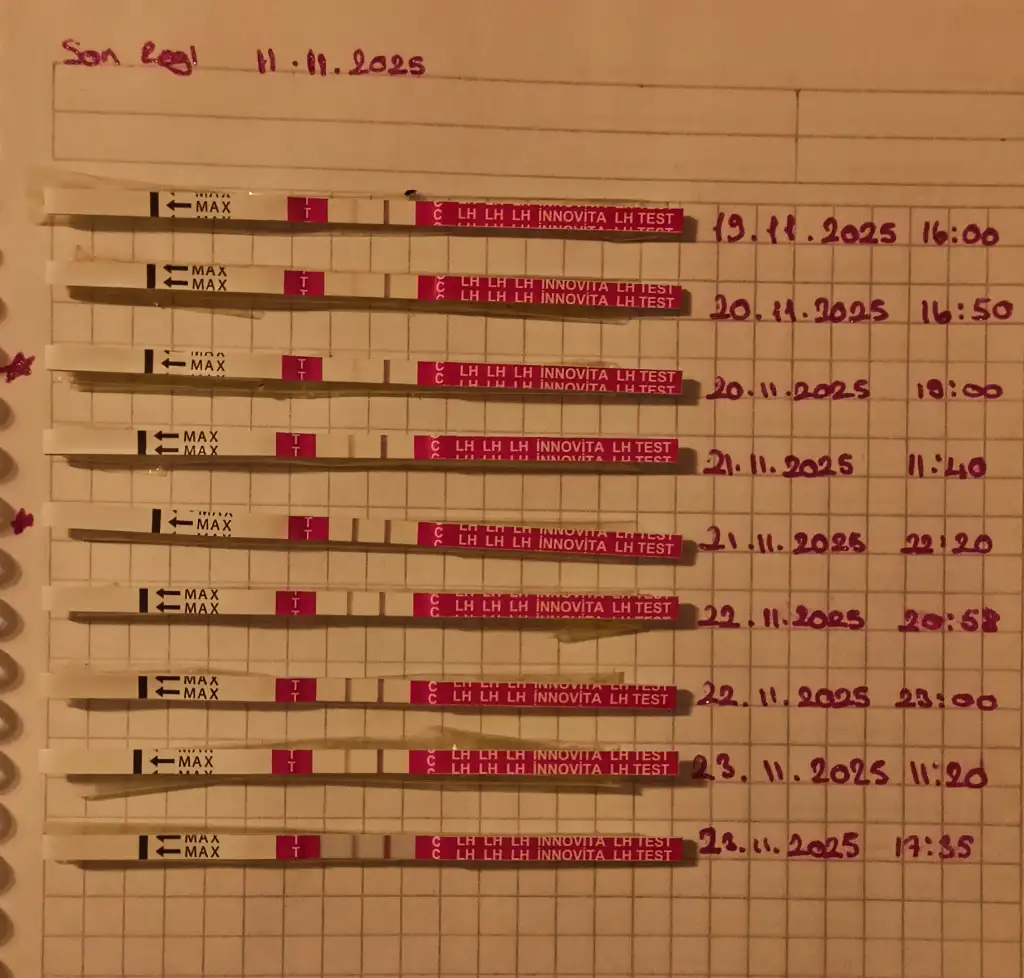 Son Regl 11.11.2025
MAX MAX T T C C LH LH LH İNNOVİTA LH TEST 19.11.2025 16:00
MAX MAX T T C C LH LH LH İNNOVİTA LH TEST LH LH LH İNNOVİTA LH TEST 20.11.2025 16:50
MAX T T C C LH LH LH İNNOVİTA LH TEST LH LH LH İNNOVİTA LH TEST 20.11.2025 19:00
MAX MAX T T C C LH LH LH İNNOVİTA LH TEST 21.11.2025 11:40
MAX T T C C LH LH LH İNNOVİTA LH TEST LH LH LH İNNOVİTA LH TEST 21.11.2025 22:20
MAX MAX T T C C LH LH LH İNNOVİTA LH TEST 22.11.2025 20:58
MAX MAX T T C C LH LH LH İNNOVİTA LH TEST LH LH LH İNNOVİTA LH TEST 22.11.2025 23:00
MAX T T C C LH LH LH İNNOVİTA LH TEST LH LH LH İNNOVİTA LH TEST 23.11.2025 11:20
MAX MAX T T C C LH LH LH İNNOVİTA LH TEST LH LH LH İNNOVİTA LH TEST 23.11.2025 17:35